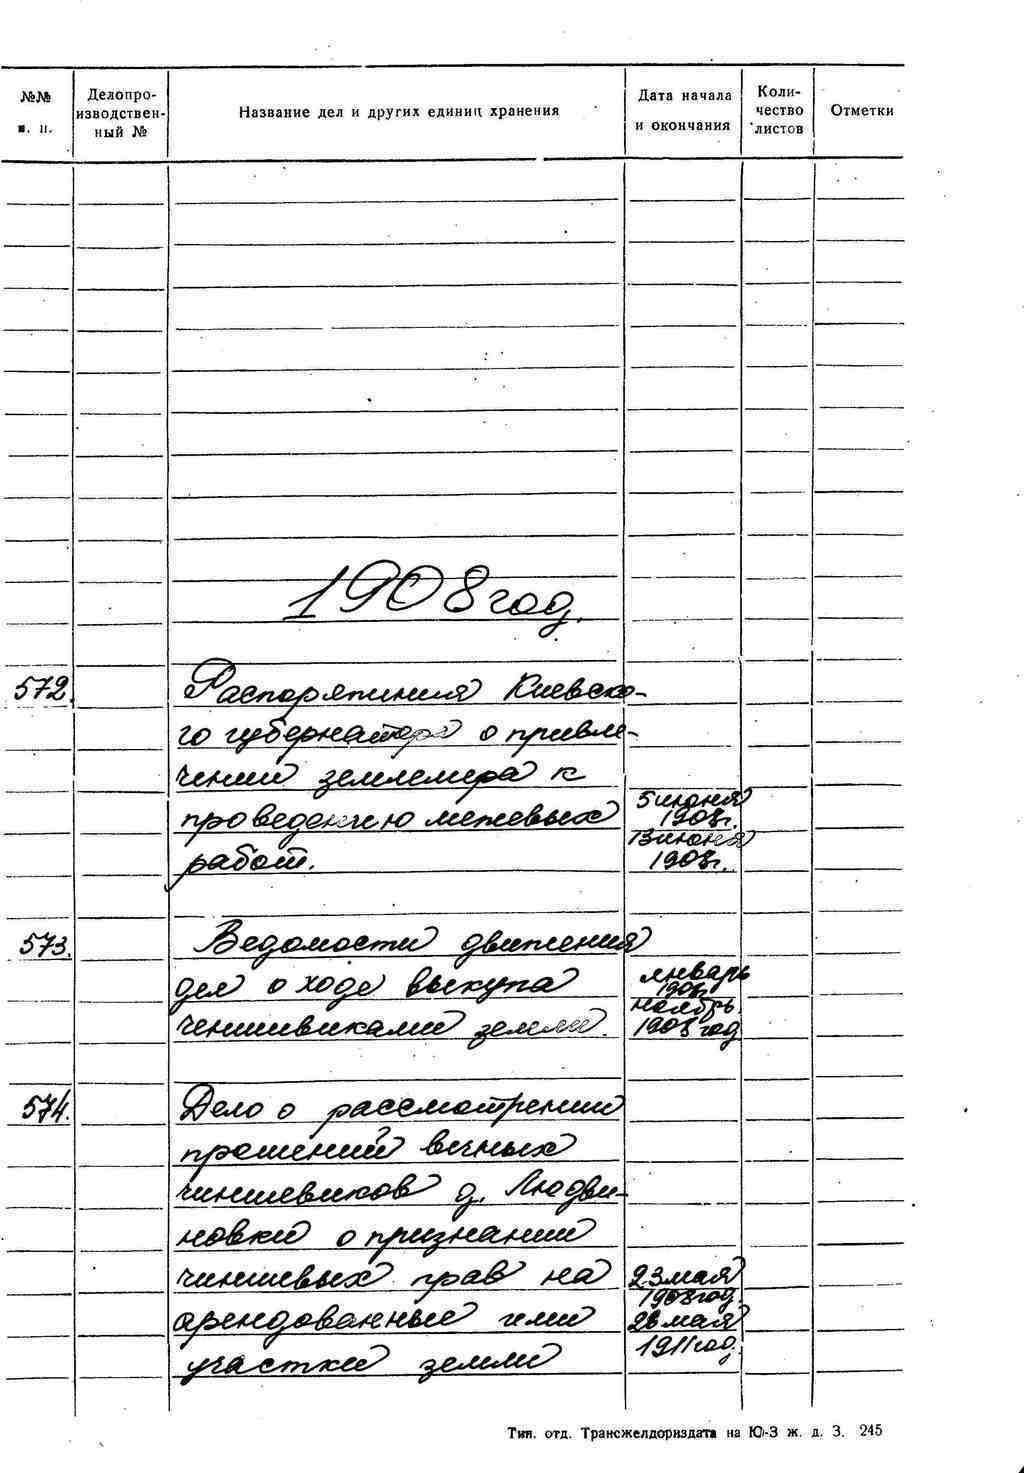 №№ п. п.
Делопро-
изводствен-
ный №
Название дел и других единиц хранения
Дата начала
и окончания
Коли-
чество
листов
Отметки
1908 год.
572.
Распоряжения Киевско-
го губернатора о привле-
чении землемера к
проведению межевых
работ.
5 июня
1908г.
13 июня
1908г.
573.
Ведомости движения
дел о ходе выкупа
чиншевиками земли.
январь
1908г.
ноябрь
1908 год
574.
Дело о рассмотрении
прошений вечных
чиншевиков д. Людви-
новки о признании
чиншевых прав на
арендованные ими
участки земли
23 мая
1908 год.
28 мая
1911 год.
Тип. отд. Трансжелдориздата на Ю-З ж. д. З. 245